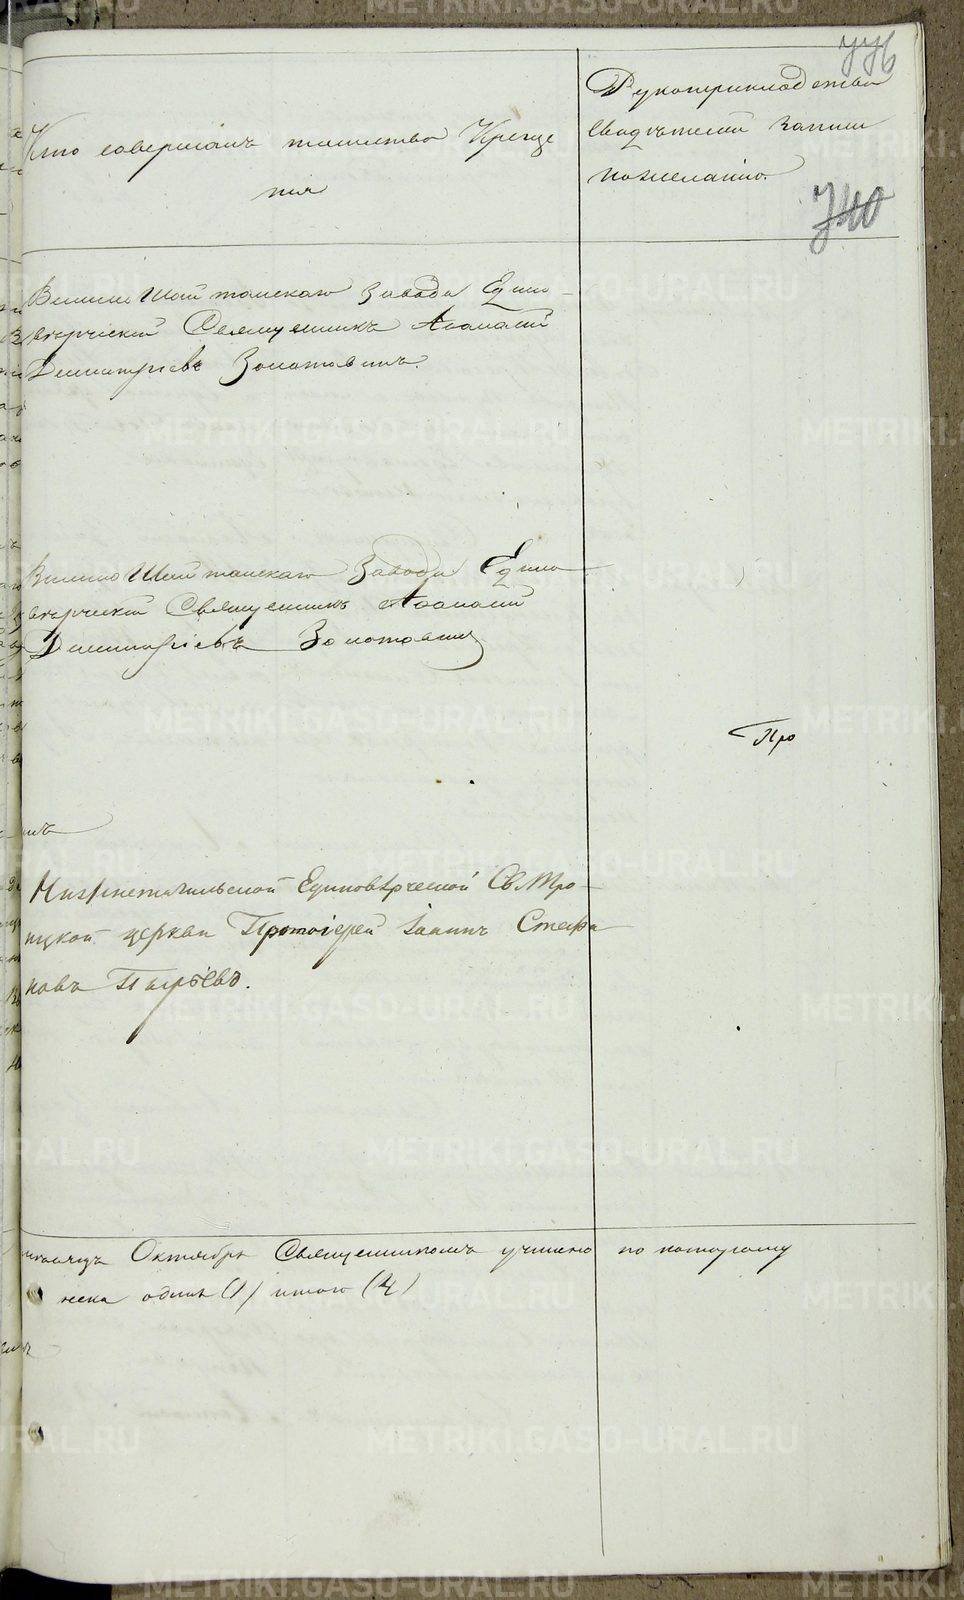 776
Кто совершалъ таинство Креще
нія
Рукоприкладство
свидѣтелей записи
по желанію.
740
Висимо Шайтанскаго Завода Едино-
вѣрческій Священникъ Аѳанасій
Димитріевъ Золотовинъ.
Висимо Шайтанскаго Завода Едино-
вѣрческій Священникъ Аѳанасій
Димитріевъ Золотовинъ
Про
Нижнетагильской Единовѣрческой Св. Тро-
ицкой церкви Протоіерей Іоаннъ Стефа
новъ Пырьевъ.
мѣсяцъ Октябрь Священникомъ учинено по которому
пола одинъ (1) итого (4)
METRIKI.GASO-URAL.RU